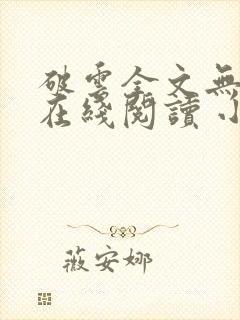 破雲全文無
在綫閱讀
薇安娜